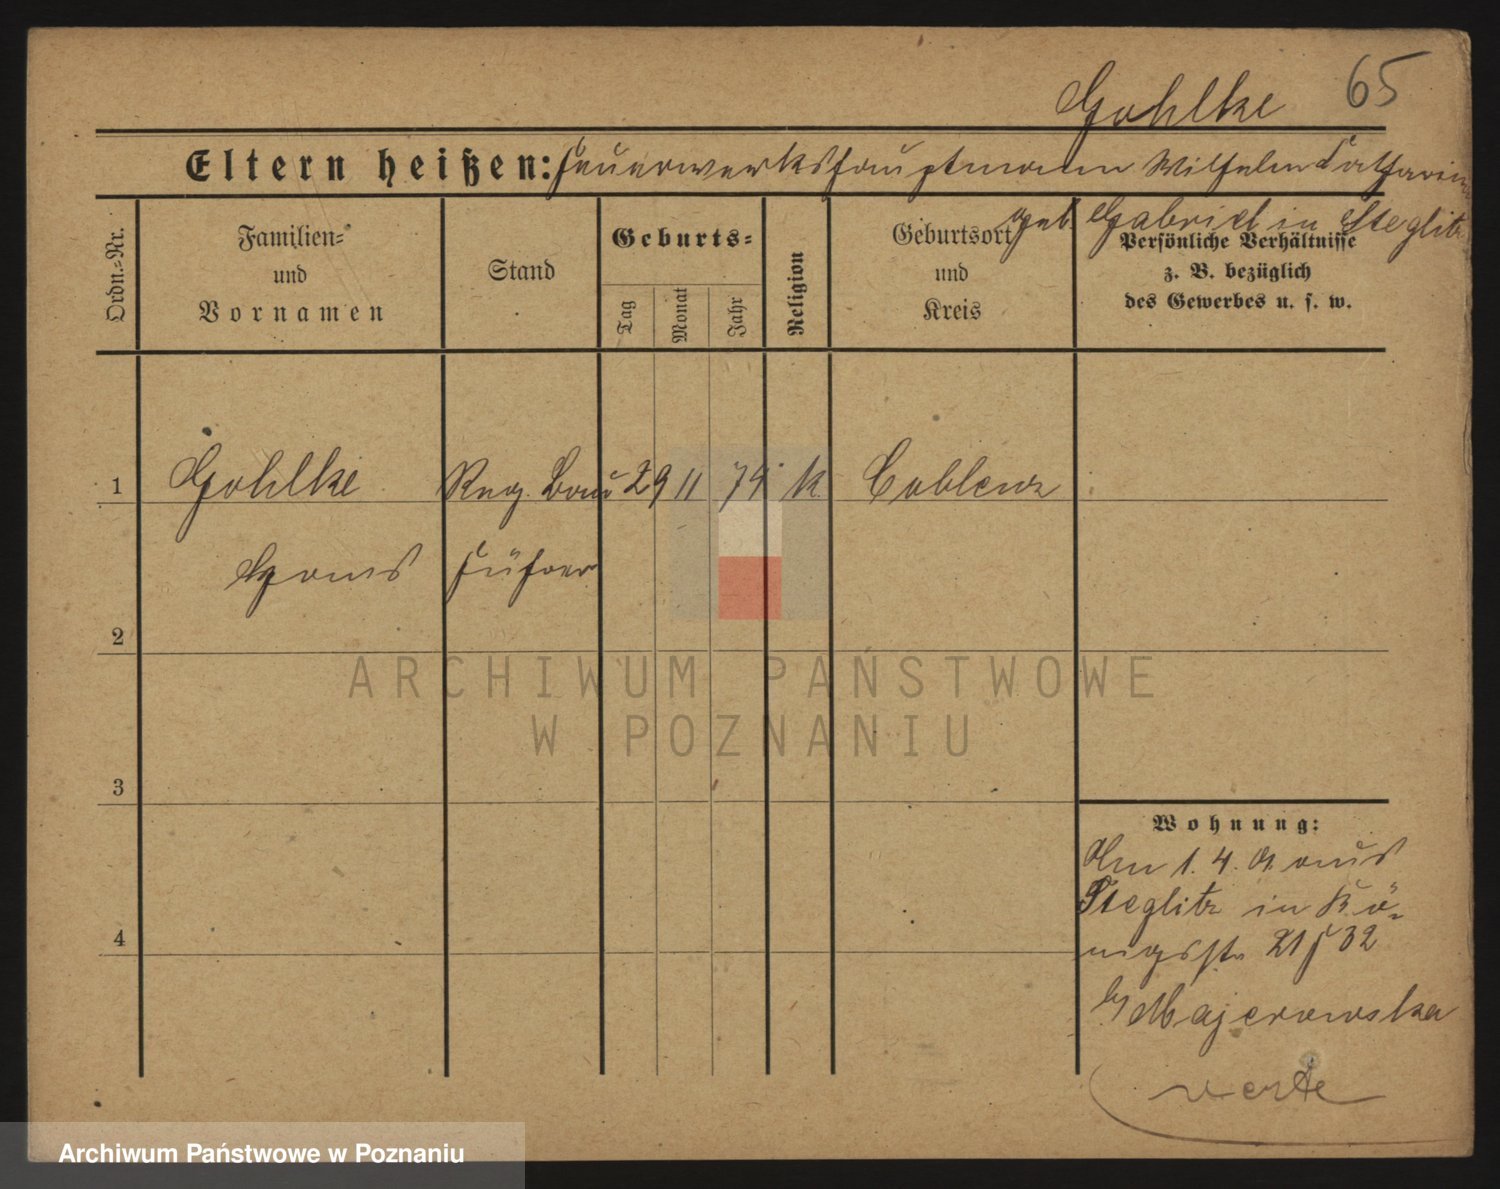 Gohlke 65
Eltern heißen: Feuerwerkshauptmann Wilhelm Catharina
geb. Gabriel in Steglitz
Ordn.-Nr.
Familien-
und
Vornamen
Stand
Geburts-
Tag
Monat
Jahr
Religion
Geburtsort
und
Kreis
Persönliche Verhältnisse
z. B. bezüglich
des Gewerbes u. s. w.
1 Gohlke Reg. Bau 29 11 74 k. Coblenz
Hans Führer
2
3
4
Wohnung:
Am 1. 4. 01 aus
Steglitz in Kö-
nigsstr 21 f 32
by Majerowska
verte
ARCHIWUM PAŃSTWOWE
W POZNANIU
Archiwum Państwowe w Poznaniu